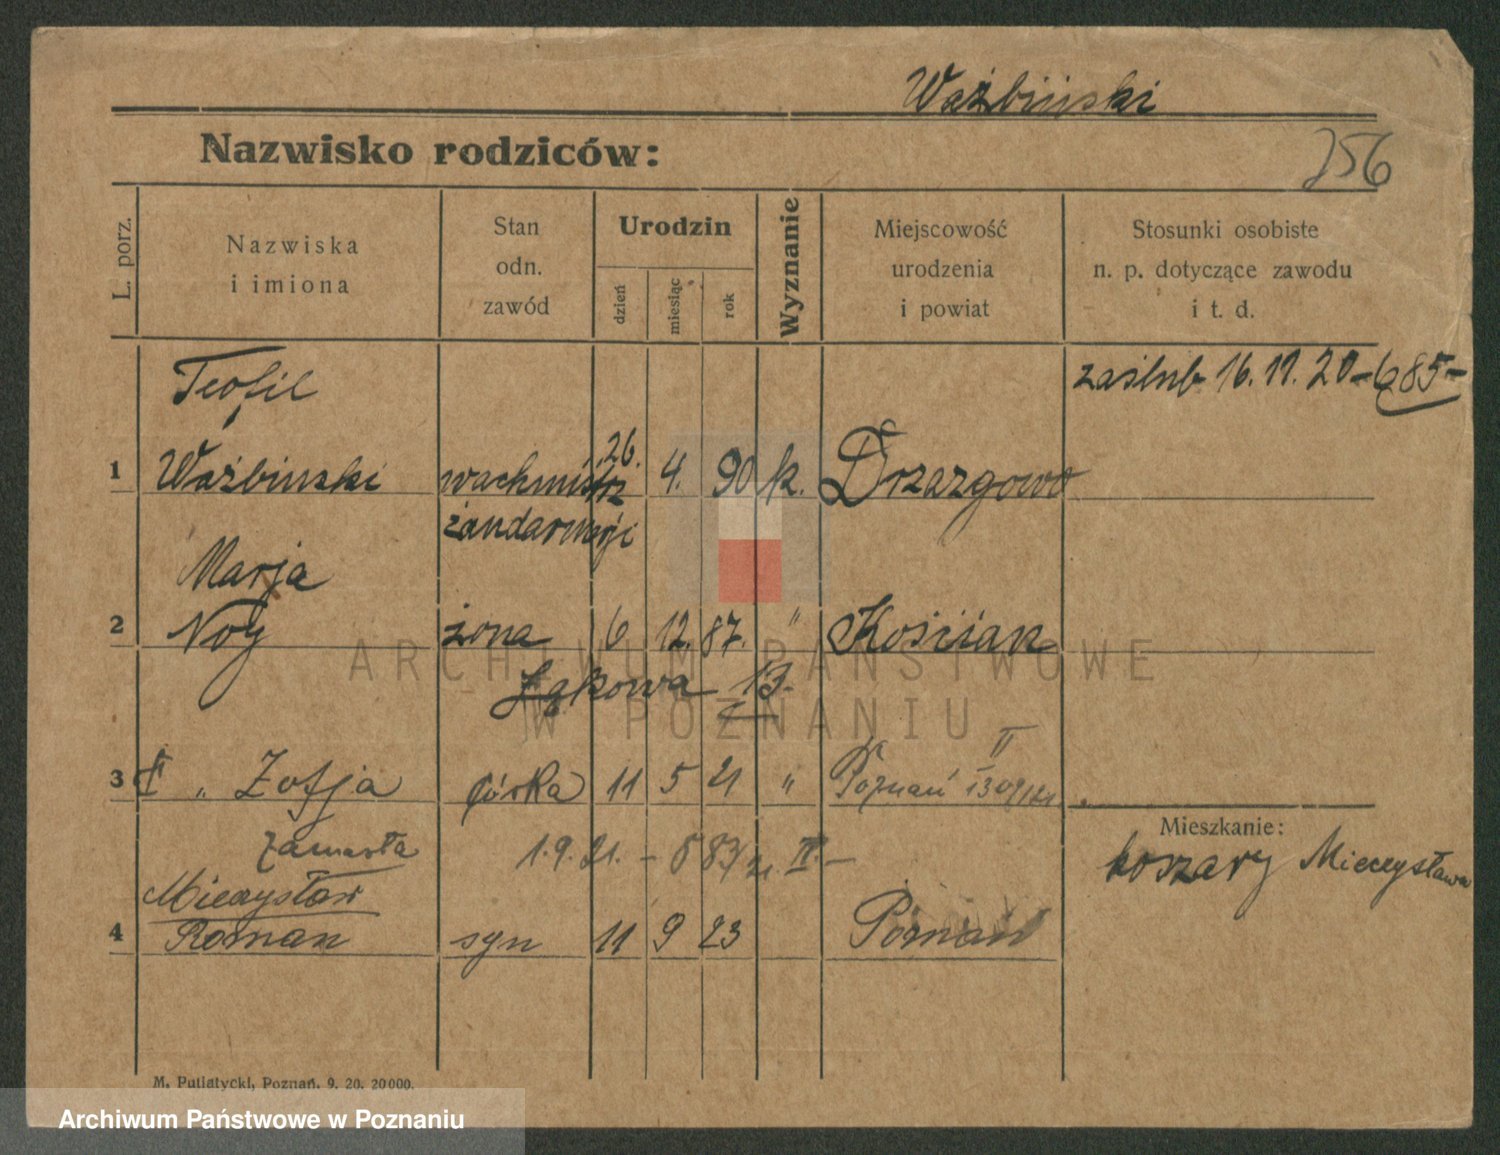 Ważbiński
Nazwisko rodziców:
256
L. porz.
Nazwiska
i imiona
Stan
odn.
zawód
Urodzin
dzień
miesiąc
rok
Wyznanie
Miejscowość
urodzenia
i powiat
Stosunki osobiste
n. p. dotyczące zawodu
i t. d.
Teofil
zaślub 16. 11. 20 - 685 -
1 Ważbinski wachmistrz 26. 4. 90 k. Drzazgowo
żandarmerji
Marja
2 Noy żona 6 12. 87. " Kościan
ARCHIWUM PAŃSTWOWE
Łąkowa 13.
W POZNANIU
II
3 " Zofja córka 11 5 21 " Poznań
Mieszkanie:
zamarła 1. 9. 21. - 883/21. II -
koszary Mieczysława
Mieczysław
4 Roman syn 11 9 23 Poznań
M. Putiatycki, Poznań. 9. 20. 20000.
Archiwum Państwowe w Poznaniu